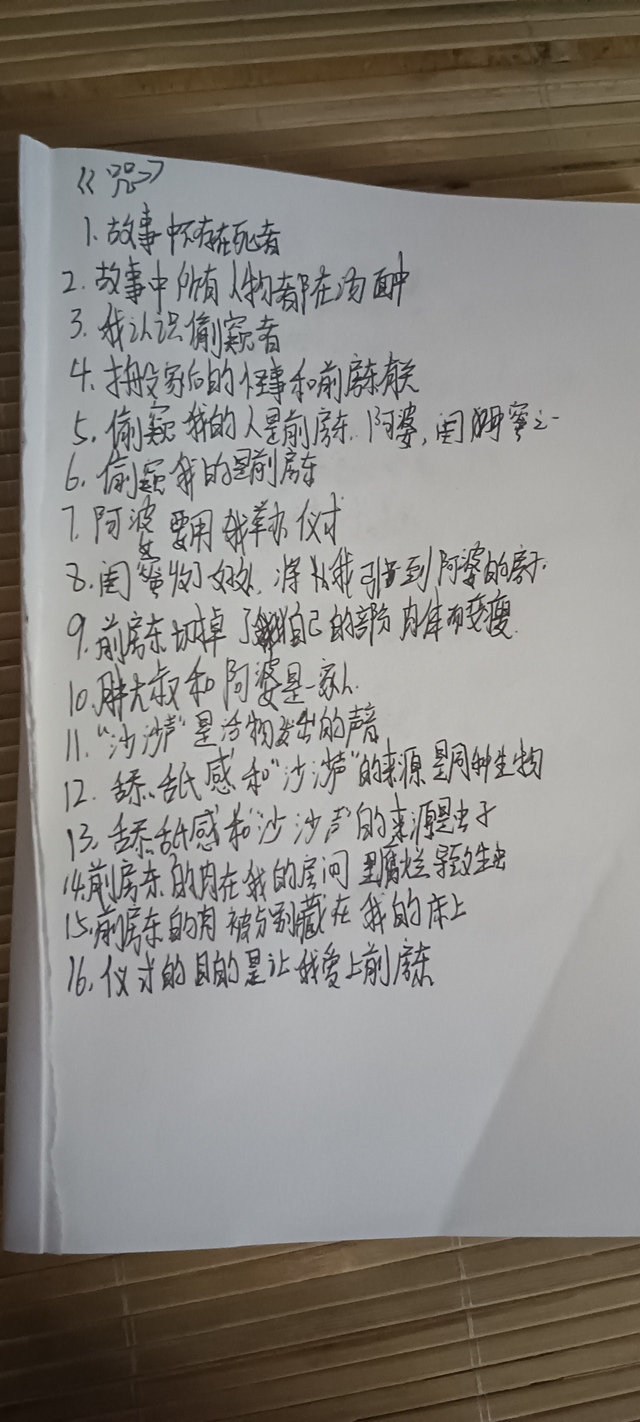 《咒》
1. 故事中不存在死者
2. 故事中所有人物都在汤面中
3. 我认识偷窥者
4. 搬家后的怪事和前房东有关
5. 偷窥我的人是前房东、阿婆,闺蜜之一
6. 偷窥我的是前房东
7. 阿婆要用我举办仪式
8. 闺蜜收了好处,将我引到阿婆的房子.
9. 前房东切掉了自己的部分肉体而变瘦.
10. 胖大叔和阿婆是一家人
11. “沙沙声”是活物发出的声音
12. 舔舐感和“沙沙声”的来源是同种生物
13. 舔舐感和“沙沙声”的来源是虫子
14. 前房东的肉在我的房间里腐烂导致生虫
15. 前房东的肉被分割藏在我的床上
16. 仪式的目的是让我爱上前房东